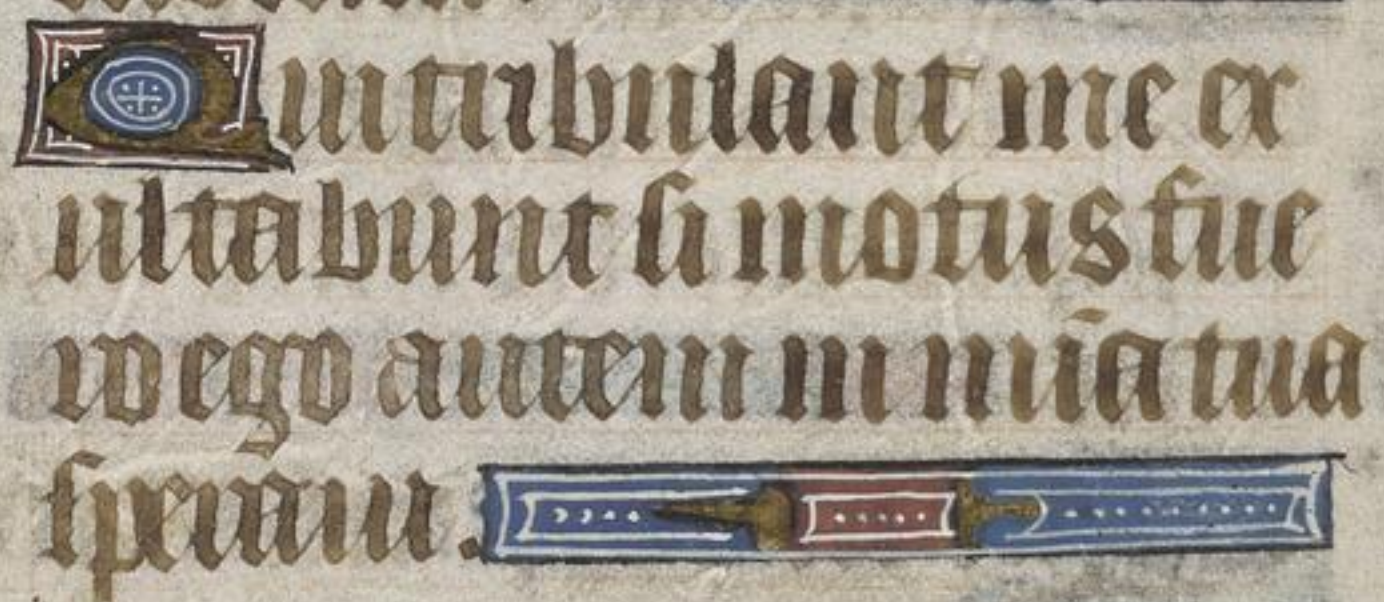 Qui tribulant me ex
ultabunt si motus fue
ro ego autem in mīa tua
speraui.